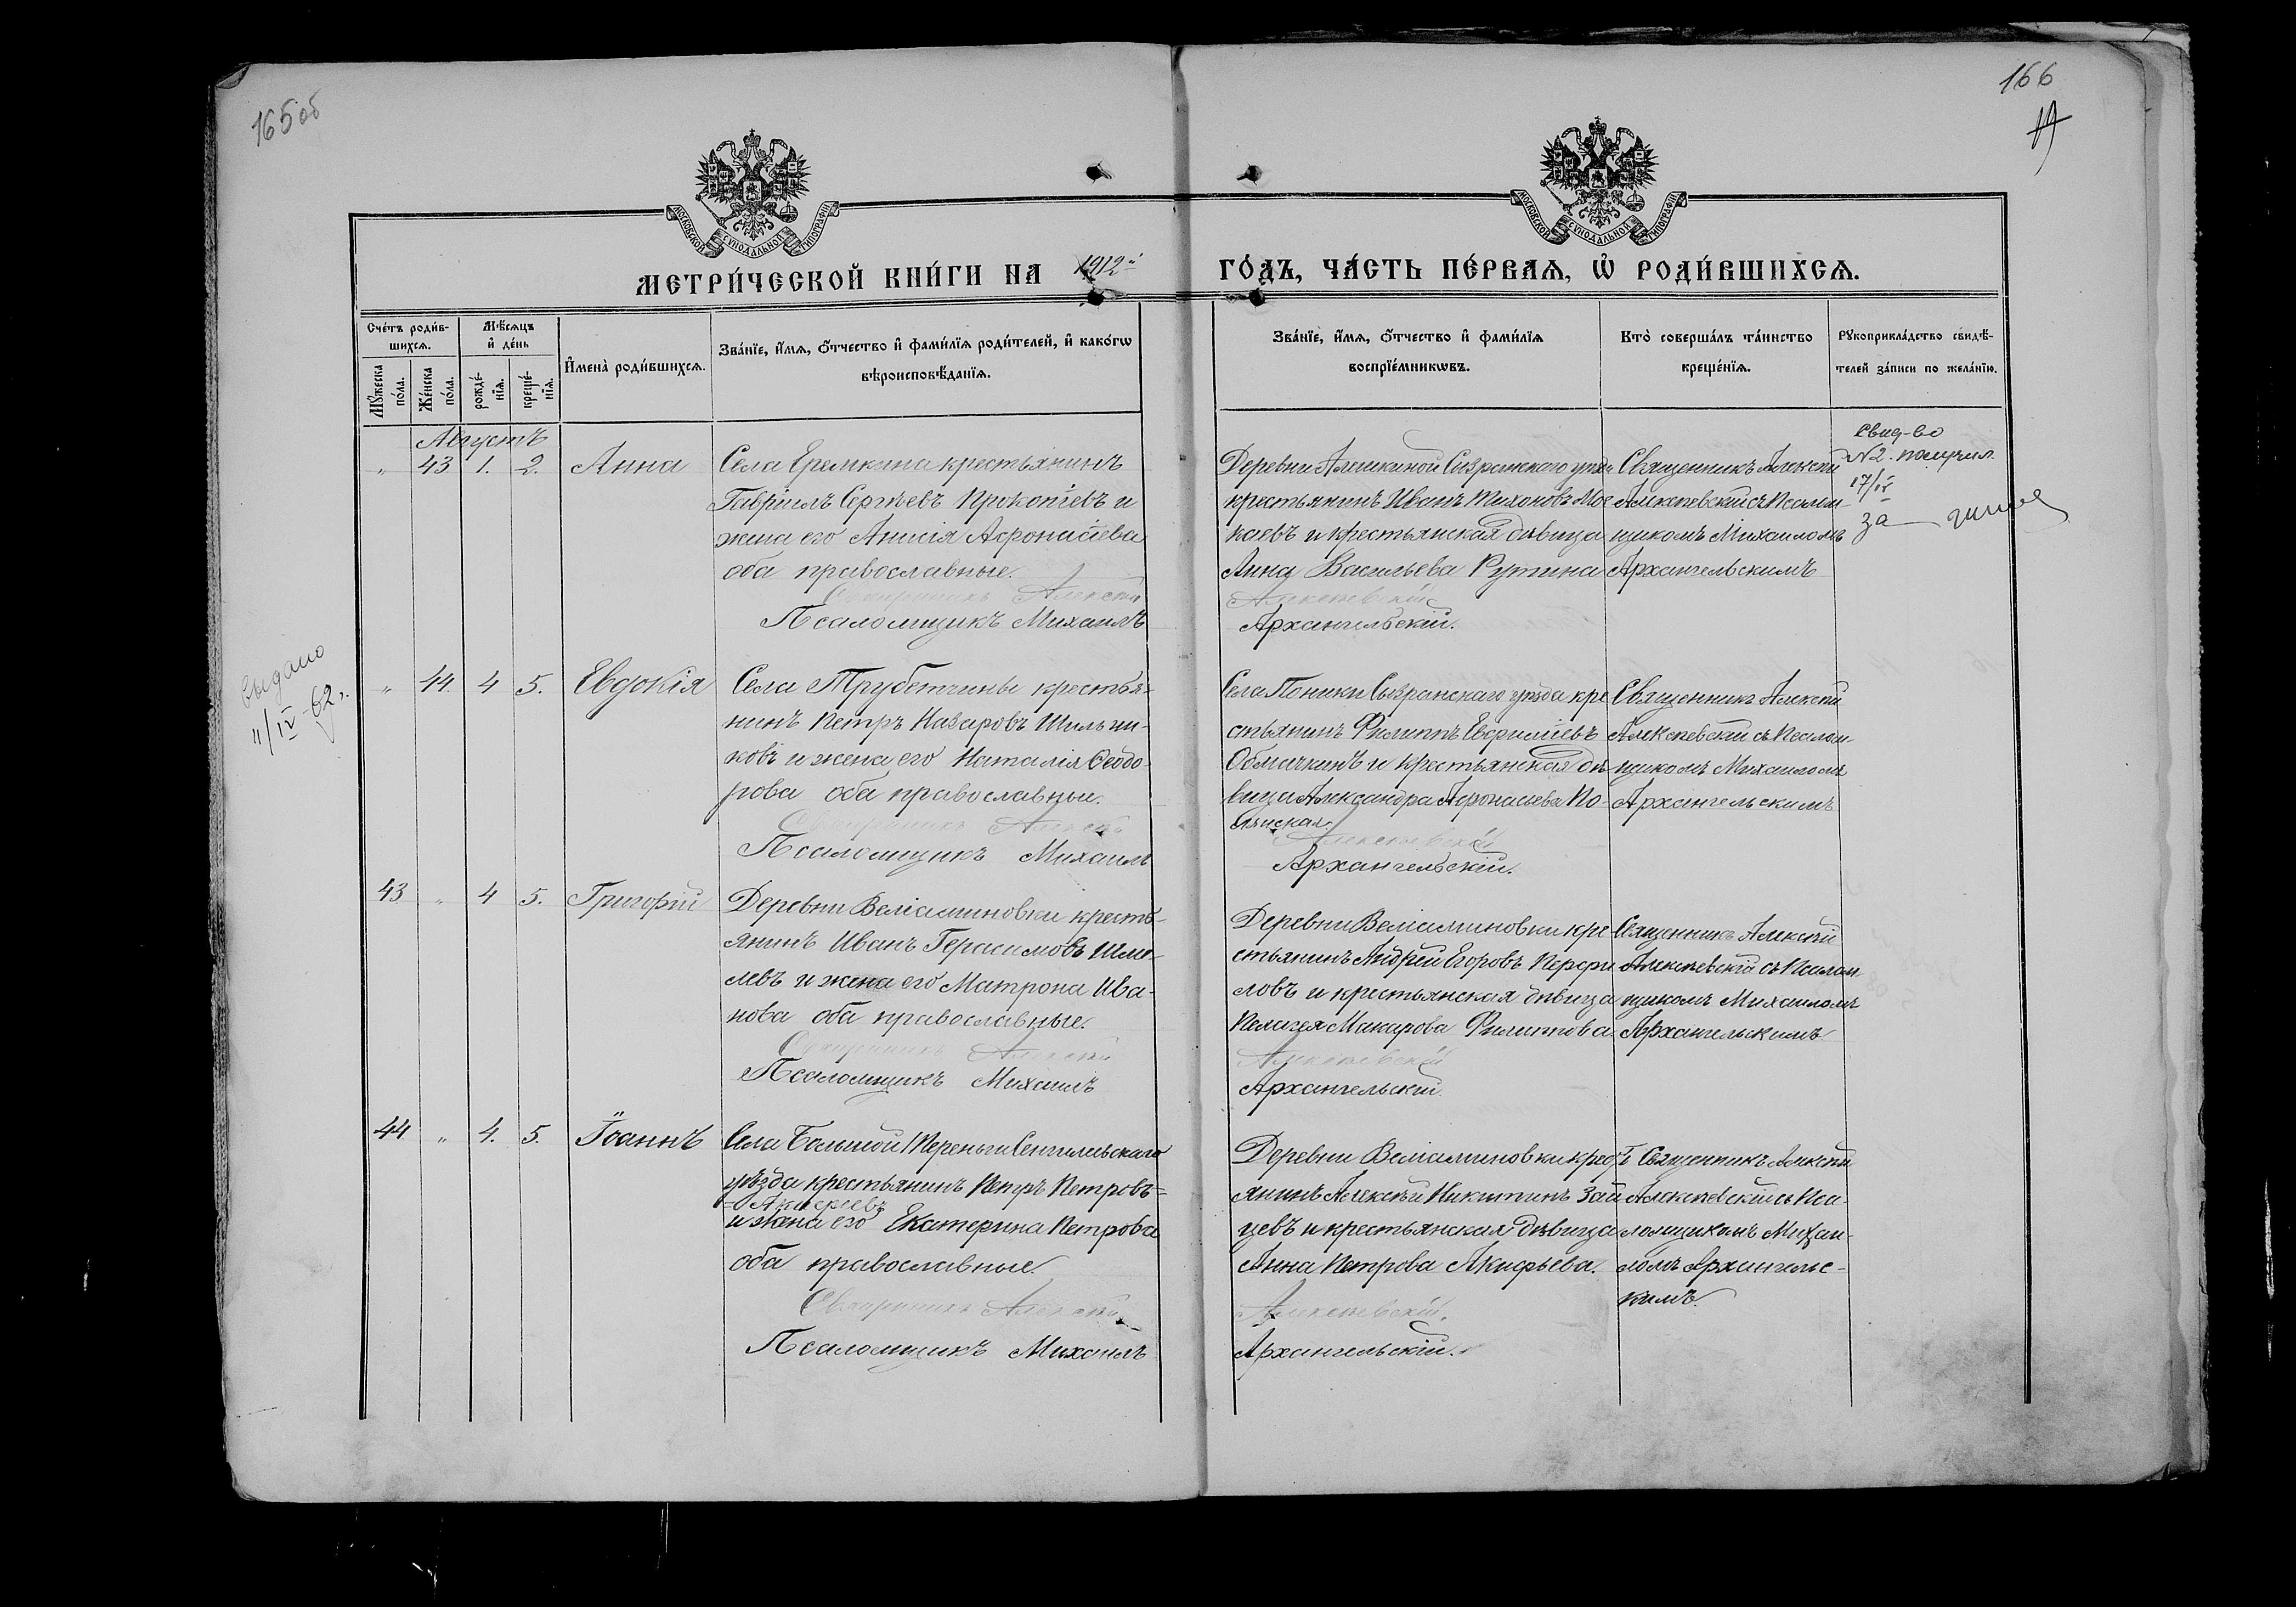 165 об
166
19
МОСКОВСКОЙ СѴНОДАЛЬНОЙ ТИПОГРАФІИ
МОСКОВСКОЙ СѴНОДАЛЬНОЙ ТИПОГРАФІИ
МЕТРИ́ЧЕСКОЙ КНИ́ГИ НА 1912й ГО́ДЪ, ЧА́СТЬ ПЕ́РВАѦ, Ѡ҆ РОДИ́ВШИХСѦ.
Сче́тъ роди́в-
шихсѧ.
Мꙋ́жеска
по́ла.
Же́нска
по́ла.
Мѣ́сѧцъ
и҆ де́нь
рожде́-
нїѧ.
креще́-
нїѧ.
И҆мена̀ роди́вшихсѧ.
Зва́нїе, и҆́мѧ, ѻ҆́тчество и҆ фами́лїѧ роди́телей, и҆ како́гѡ
вѣроисповѣ́данїѧ.
Зва́нїе, и҆́мѧ, ѻ҆́тчество и҆ фами́лїѧ
воспрїе́мникѡвъ.
Кто̀ соверша́лъ та́инство
креще́нїѧ.
Рꙋкоприкла́дство свидѣ́-
телей за́писи по жела́нїю.
Августъ
" 43 1. 2. Анна
Села Еремкина крестьянинъ
Гавріилъ Сергѣевъ Прокопіевъ и
жена его Анисія Афонасіева
оба православные.
Священникъ Алексѣй
Псаломщикъ Михаилъ
Деревни Алешкиной Сызранскаго уѣзда
крестьянинъ Иванъ Тихоновъ Мос
каевъ и крестьянская дѣвица
Анна Васильева Рутина
Алексѣевскій
Архангельскій.
Священникъ Алексѣй
Алексѣевскій съ Псалом
щикомъ Михаиломъ
Архангельскимъ
Свид-во
N2. получил
17/IV
за
выдано
11/IV-62 г.
" 44. 4 5. Евдокія
Села Трубетчины крестья-
нинъ Петръ Назаровъ Шильни-
ковъ и жена его Наталія Ѳеодо-
рова оба православные.
Священникъ Алексѣй
Псаломщикъ Михаилъ
Села Поники Сызранскаго уѣзда кре
стьянинъ Филиппъ Евфиміевъ
Обмачкинъ и крестьянская дѣ
вица Александра Афонасьева По-
лянская.
Алексѣевскій
Архангельскій.
Священникъ Алексѣй
Алексѣевскій съ Псалом-
щикомъ Михаиломъ
Архангельскимъ
43 " 4 5. Григорій
Деревни Веліаминовки кресть-
янинъ Иванъ Герасимовъ Шме-
левъ и жена его Матрона Ива-
нова оба православные.
Священникъ Алексѣй
Псаломщикъ Михаилъ
Деревни Веліаминовки кре
стьянинъ Андрей Егоровъ Перфи
ловъ и крестьянская дѣвица
Пелагея Макарова Филиппова
Алексѣевскій
Архангельскій.
Священникъ Алексѣй
Алексѣевскій съ Псалом
щикомъ Михаиломъ
Архангельскимъ
44 " 4. 5. Іоаннъ
Села Большой Тереньги Сенгилеевскаго
уѣзда крестьянинъ Петръ Петровъ=
=Акифіевъ
и жена его Екатерина Петрова
оба православные.
Священникъ Алексѣй
Псаломщикъ Михаилъ
Деревни Веліаминовки крест
янинъ Алексѣй Никитинъ Зай
цевъ и крестьянская дѣвица
Анна Петрова Акифьева.
Алексѣевскій.
Архангельскій.
Священникъ Алексѣй
Алексѣевскій съ Пса-
ломщикомъ Михаи-
ломъ Архангельс-
кимъ.